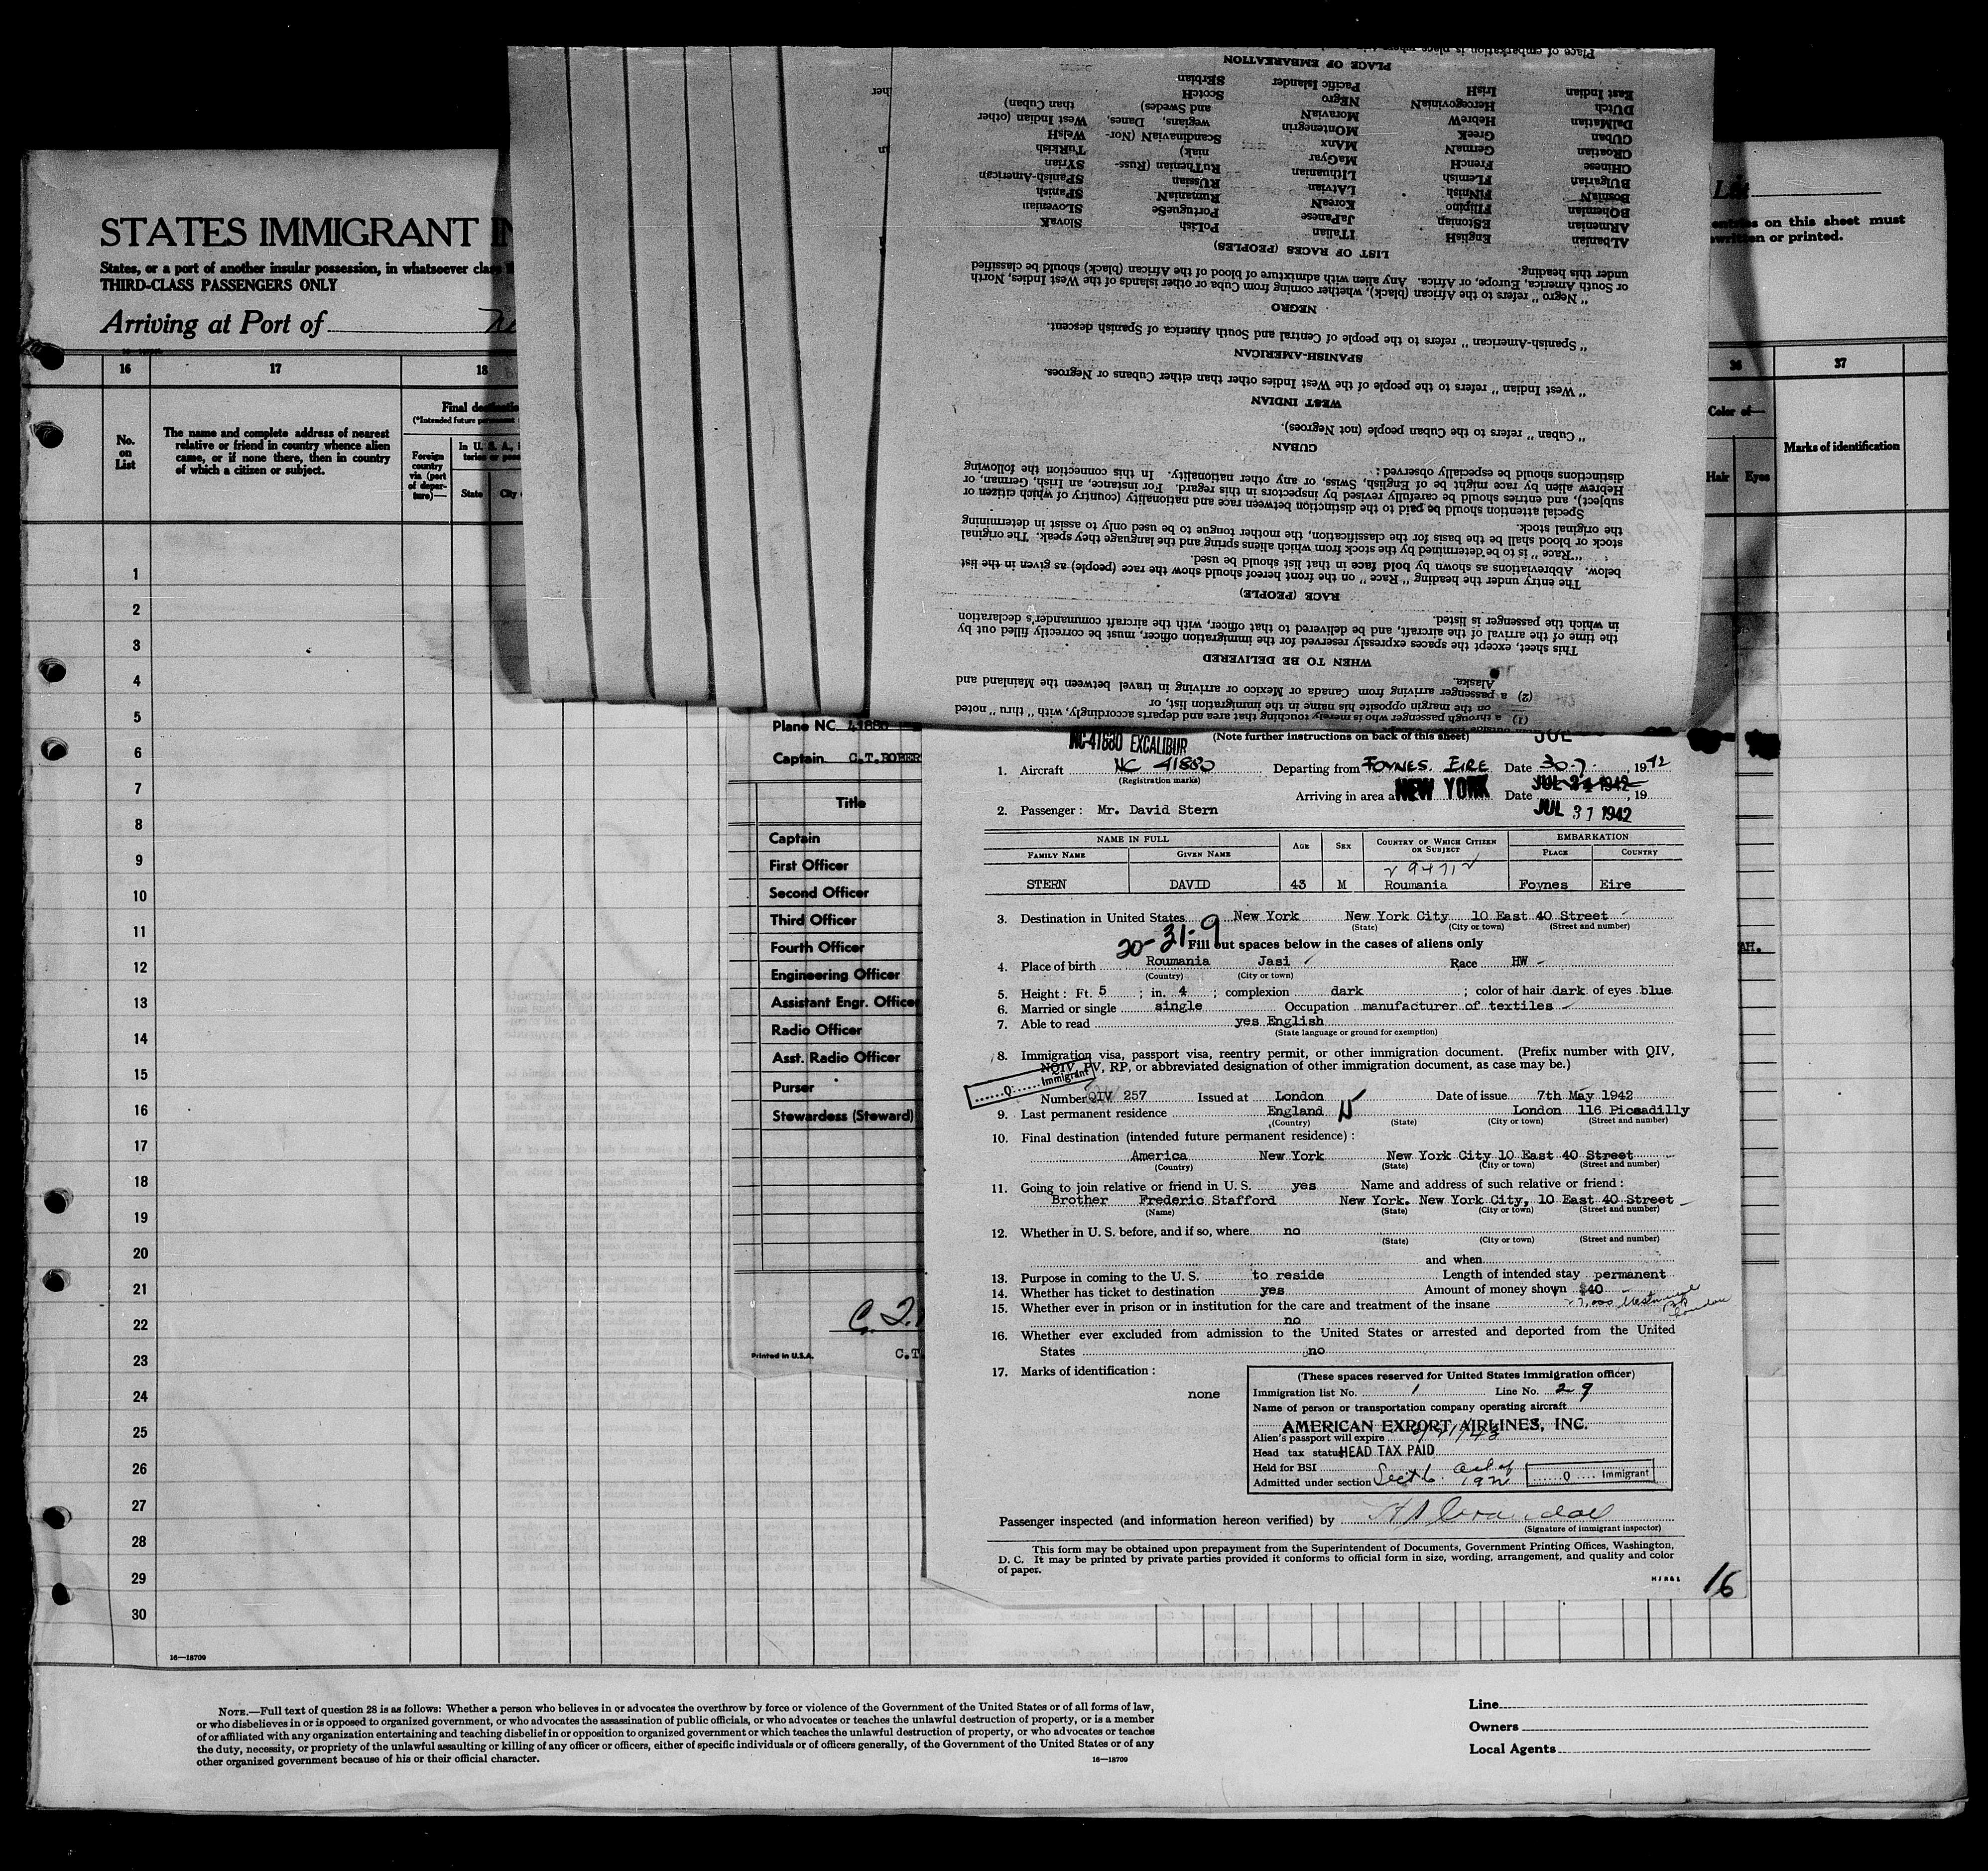 Place of embarkation is place where
PLACE OF EMBARKATION
East Indian IrisH Pacific Islander SErbian
DUtch HercegoviniaN NEgro ScotcH than Cuban)
DalMatian HebreW MoraviaN and Swedes) West Indian (other
CUban GreeK MOntenegrin wegians, Danes,
CRoatian GermaN MAnx Scandinavia​N (Nor- WelsH
CHinese FrencH MaGyar niak) TuRkish
BUlgarian FLemish LIthuanian RuThenian (Russ- SYrian
BosniaN FiNnish LAtvian RUssian SPanish-American
BOhemian FIlipino KoreaN RumaniaN SPanish
ARmenian EStonian JaPanese PortugueSe SLovenian
ALbanian EnglisH ITalian PoLish SlovaK
LIST OF RACES (PEOPLES)
under this heading.
or South America, Europe, or Africa. Any alien with admixture of blood of the African (black) should be classified
"Negro" refers to the African (black), whether coming from Cuba or other islands of the West Indies, North
NEGRO
"Spanish-American" refers to the people of Central and South America of Spanish descent.
SPANISH-AMERICAN
"West Indian" refers to the people of the West Indies other than either Cubans or Negroes.
WEST INDIAN
"Cuban" refers to the Cuban people (not Negroes).
CUBAN
distinctions should be especially observed:
Hebrew alien by race might be of English, Swiss, or any other nationality. In this connection the following
subject), and entries should be carefully revised by inspectors in this regard. For instance, an Irish, German, or
Special attention should be paid to the distinction between race and nationality (country of which citizen or
the original stock.
stock or blood shall be the basis for the classification, the mother tongue to be used only to assist in determining
"Race" is to be determined by the stock from which aliens spring and the language they speak. The original
below. Abbreviations as shown by bold face in that list should be used.
The entry under the heading "Race" on the front hereof should show the race (people) as given in the list
RACE (PEOPLE)
in which the passenger is listed.
the time of the arrival of the aircraft, and be delivered to that officer, with the aircraft commander's declaration
This sheet, except the spaces expressly reserved for the immigration officer, must be correctly filled out by
WHEN TO BE DELIVERED
Alaska.
(2) a passenger arriving from Canada or Mexico or arriving in travel between the Mainland and
on the margin opposite his name in the immigration list, or
(1) a through passenger who is merely touching that area and departs accordingly, with "thru" noted
STATES IMMIGRANT IN
States, or a port of another insular possession, in whatsoever class
THIRD-CLASS PASSENGERS ONLY
Arriving at Port of
List
entries on this sheet must
written or printed.
16 17 18 36 37
No. on List
The name and complete address of nearest
relative or friend in country whence alien
came, or if none there, then in country
of which a citizen or subject.
Final destination
(*Intended future permanent
Foreign country via (port of departure)—
In U. S. A.,
State City
Color of—
Hair Eyes
Marks of identification
1
2
3
4
5
6
7
8
9
10
11
12
13
14
15
16
17
18
19
20
21
22
23
24
25
26
27
28
29
30
16—18709
Plane NC 41880
Captain C.T.ROBER
Title
Captain
First Officer
Second Officer
Third Officer
Fourth Officer
Engineering Officer
Assistant Engr. Officer
Radio Officer
Asst. Radio Officer
Purser
Stewardess (Steward)
Printed in U.S.A. C.T.
AH.
NC-41880 EXCALIBUR (Note further instructions on back of this sheet) JUL
1. Aircraft NC 41880 Departing from FOYNES. EIRE Date 30-7 , 1942
(Registration marks)
Arriving in area at NEW YORK Date JUL 24 1942 , 19
2. Passenger: Mr. David Stern JUL 31 1942
NAME IN FULL AGE SEX COUNTRY OF WHICH CITIZEN OR SUBJECT EMBARKATION
FAMILY NAME GIVEN NAME PLACE COUNTRY
STERN DAVID 43 M Roumania Foynes Eire
3. Destination in United States New York New York City 10 East 40 Street
(State) (City or town) (Street and number)
20-31-9
Fill out spaces below in the cases of aliens only
4. Place of birth Roumania Jasi Race HW
(Country) (City or town)
5. Height: Ft. 5 ; in. 4 ; complexion dark ; color of hair dark of eyes blue
6. Married or single single Occupation manufacturer of textiles
7. Able to read yes English
(State language or ground for exemption)
8. Immigration visa, passport visa, reentry permit, or other immigration document. (Prefix number with QIV,
NQIV, PV, RP, or abbreviated designation of other immigration document, as case may be.)
Q Immigrant
Number QIV 257 Issued at London Date of issue 7th May 1942
9. Last permanent residence England London 116 Piccadilly
(Country) (State) (City or town) (Street and number)
10. Final destination (intended future permanent residence):
America New York New York City 10 East 40 Street
(Country) (State) (City or town) (Street and number)
11. Going to join relative or friend in U. S. yes Name and address of such relative or friend:
Brother Frederic Stafford New York. New York City, 10 East 40 Street
(Name) (State) (City or town) (Street and number)
12. Whether in U. S. before, and if so, where no
(State) (City or town) (Street and number)
and when
13. Purpose in coming to the U. S. to reside Length of intended stay permanent
14. Whether has ticket to destination yes Amount of money shown $40
15. Whether ever in prison or in institution for the care and treatment of the insane
no
16. Whether ever excluded from admission to the United States or arrested and deported from the United
States no
17. Marks of identification:
none
(These spaces reserved for United States immigration officer)
Immigration list No. 1 Line No. 29
Name of person or transportation company operating aircraft
AMERICAN EXPORT AIRLINES, INC.
Alien's passport will expire
Head tax status HEAD TAX PAID
Held for BSI
Admitted under section Sect 6. Act of 1924 Q Immigrant
Passenger inspected (and information hereon verified) by
(Signature of immigrant inspector)
This form may be obtained upon prepayment from the Superintendent of Documents, Government Printing Offices, Washington,
D. C. It may be printed by private parties provided it conforms to official form in size, wording, arrangement, and quality and color
of paper.
16
NOTE.—Full text of question 28 is as follows: Whether a person who believes in or advocates the overthrow by force or violence of the Government of the United States or of all forms of law,
or who disbelieves in or is opposed to organized government, or who advocates the assassination of public officials, or who advocates or teaches the unlawful destruction of property, or is a member
of or affiliated with any organization entertaining and teaching disbelief in or opposition to organized government or which teaches the unlawful destruction of property, or who advocates or teaches
the duty, necessity, or propriety of the unlawful assaulting or killing of any officer or officers, either of specific individuals or of officers generally, of the Government of the United States or of any
other organized government because of his or their official character.
16—18709
Line
Owners
Local Agents